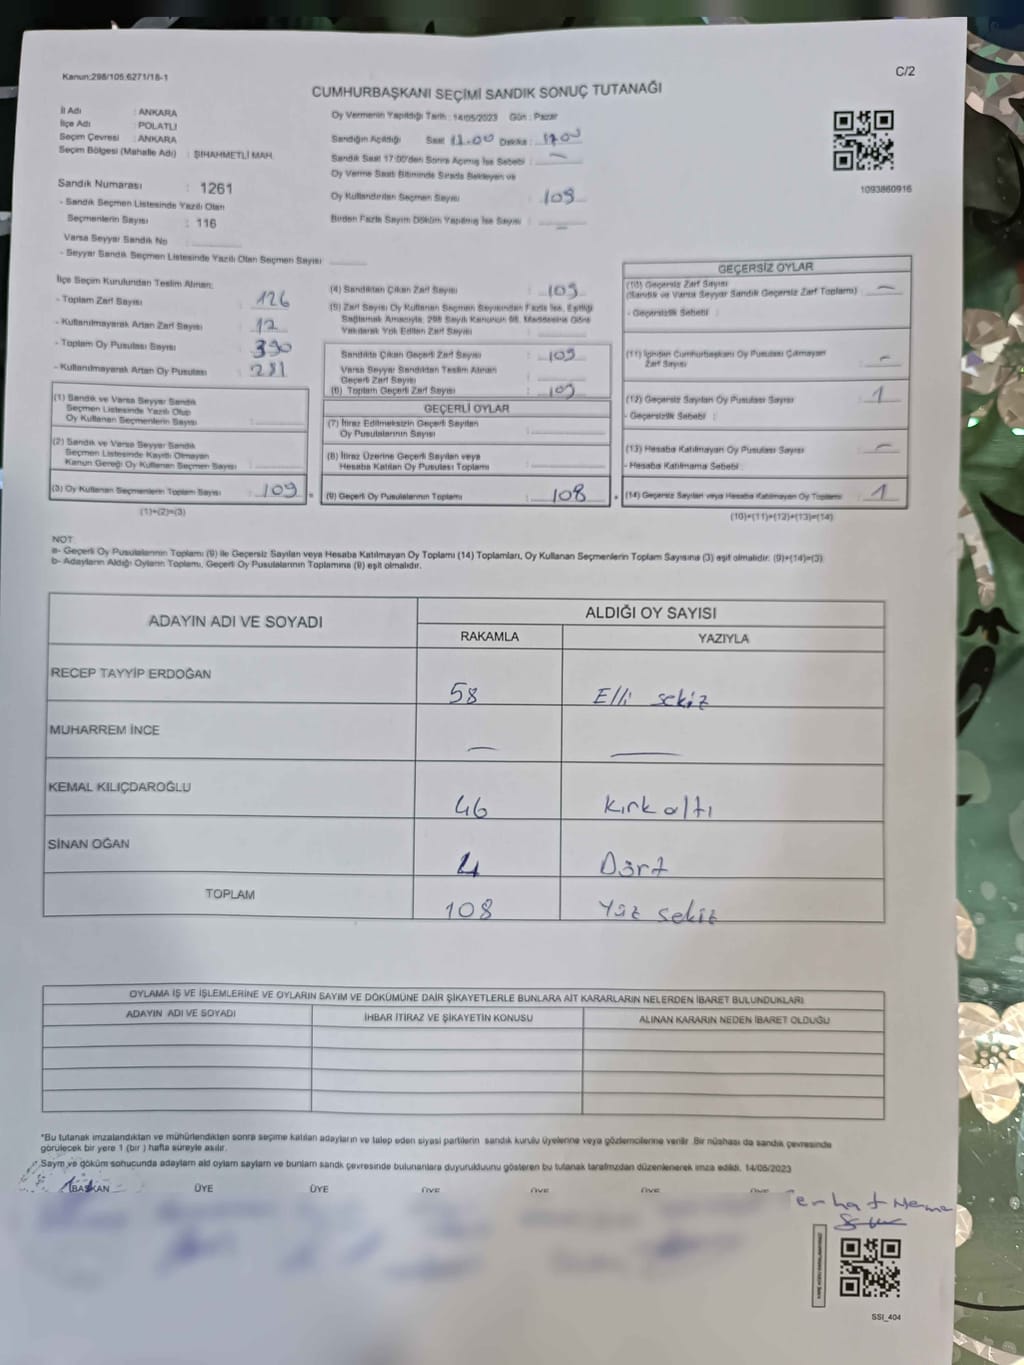 Kanun:298/105;6271/18-1
C/2
CUMHURBAŞKANI SEÇİMİ SANDIK SONUÇ TUTANAĞI
İl Adı : ANKARA
İlçe Adı : POLATLI
Seçim Çevresi : ANKARA
Seçim Bölgesi (Mahalle Adı) : ŞIHAHMETLİ MAH.
Sandık Numarası : 1261
- Sandık Seçmen Listesinde Yazılı Olan
Seçmenlerin Sayısı : 116
Varsa Seyyar Sandık No :
- Seyyar Sandık Seçmen Listesinde Yazılı Olan Seçmen Sayısı
Oy Vermenin Yapıldığı Tarih : 14/05/2023 Gün : Pazar
Sandığın Açıldığı Saat Dakika :
Sandık Saat 17:00'den Sonra Açılmış İse Sebebi :
Oy Verme Saati Bitiminde Sırada Bekleyen ve
Oy Kullandırılan Seçmen Sayısı : 109
Birden Fazla Sayım Döküm Yapılmış İse Sayısı :
1093860916
İlçe Seçim Kurulundan Teslim Alınan:
- Toplam Zarf Sayısı : 126
- Kullanılmayarak Artan Zarf Sayısı : 12
- Toplam Oy Pusulası Sayısı : 390
- Kullanılmayarak Artan Oy Pusulası : 281
(1) Sandık ve Varsa Seyyar Sandık
Seçmen Listesinde Yazılı Olup
Oy Kullanan Seçmenlerin Sayısı :
(2) Sandık ve Varsa Seyyar Sandık
Seçmen Listesinde Kayıtlı Olmayan
Kanun Gereği Oy Kullanan Seçmen Sayısı :
(3) Oy Kullanan Seçmenlerin Toplam Sayısı : 109
(1)+(2)=(3)
(4) Sandıktan Çıkan Zarf Sayısı : 109
(5) Zarf Sayısı Oy Kullanan Seçmen Sayısından Fazla İse, Eşitliği
Sağlamak Amacıyla, 298 Sayılı Kanunun 98. Maddesine Göre
Yakılarak Yok Edilen Zarf Sayısı :
Sandıkta Çıkan Geçerli Zarf Sayısı : 109
Varsa Seyyar Sandıktan Teslim Alınan
Geçerli Zarf Sayısı :
(6) Toplam Geçerli Zarf Sayısı : 109
GEÇERLİ OYLAR
(7) İtiraz Edilmeksizin Geçerli Sayılan
Oy Pusulalarının Sayısı :
(8) İtiraz Üzerine Geçerli Sayılan veya
Hesaba Katılan Oy Pusulası Toplamı :
(9) Geçerli Oy Pusulalarının Toplamı : 108
GEÇERSİZ OYLAR
(10) Geçersiz Zarf Sayısı
(Sandık ve Varsa Seyyar Sandık Geçersiz Zarf Toplamı) :
- Geçersizlik Sebebi :
(11) İçinden Cumhurbaşkanı Oy Pusulası Çıkmayan
Zarf Sayısı :
(12) Geçersiz Sayılan Oy Pusulası Sayısı : 1
- Geçersizlik Sebebi :
(13) Hesaba Katılmayan Oy Pusulası Sayısı :
- Hesaba Katılmama Sebebi :
(14) Geçersiz Sayılan veya Hesaba Katılmayan Oy Toplamı : 1
(10)+(11)+(12)+(13)=(14)
NOT
a- Geçerli Oy Pusulalarının Toplamı (9) ile Geçersiz Sayılan veya Hesaba Katılmayan Oy Toplamı (14) Toplamları, Oy Kullanan Seçmenlerin Toplam Sayısına (3) eşit olmalıdır. (9)+(14)=(3)
b- Adayların Aldığı Oyların Toplamı, Geçerli Oy Pusulalarının Toplamına (9) eşit olmalıdır.
ADAYIN ADI VE SOYADI
ALDIĞI OY SAYISI
RAKAMLA YAZIYLA
RECEP TAYYİP ERDOĞAN 58 Elli sekiz
MUHARREM İNCE — —
KEMAL KILIÇDAROĞLU 46 kırk altı
SİNAN OĞAN 4 Dört
TOPLAM 108 Yüz sekiz
OYLAMA İŞ VE İŞLEMLERİNE VE OYLARIN SAYIM VE DÖKÜMÜNE DAİR ŞİKAYETLERLE BUNLARA AİT KARARLARIN NELERDEN İBARET BULUNDUKLARI
ADAYIN ADI VE SOYADI İHBAR İTİRAZ VE ŞİKAYETİN KONUSU ALINAN KARARIN NEDEN İBARET OLDUĞU
*Bu tutanak imzalandıktan ve mühürlendikten sonra seçime katılan adayların ve talep eden siyasi partilerin sandık kurulu üyelerine veya gözlemcilerine verilir. Bir nüshası da sandık çevresinde
görülecek bir yere 1 (bir ) hafta süreyle asılır.
Sayım ve döküm sonucunda adayların
BAŞKAN ÜYE ÜYE ÜYE ÜYE ÜYE ÜYE
SSI_404